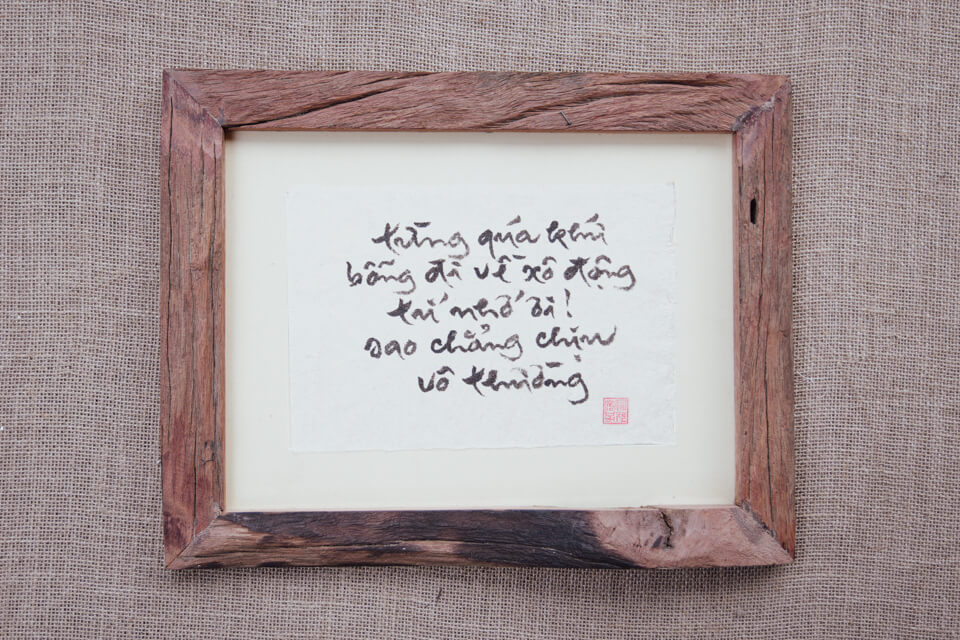 từng quá khứ
bỗng đã về xô động
trí nhớ ơi!
sao chẳng chịu
vô thường